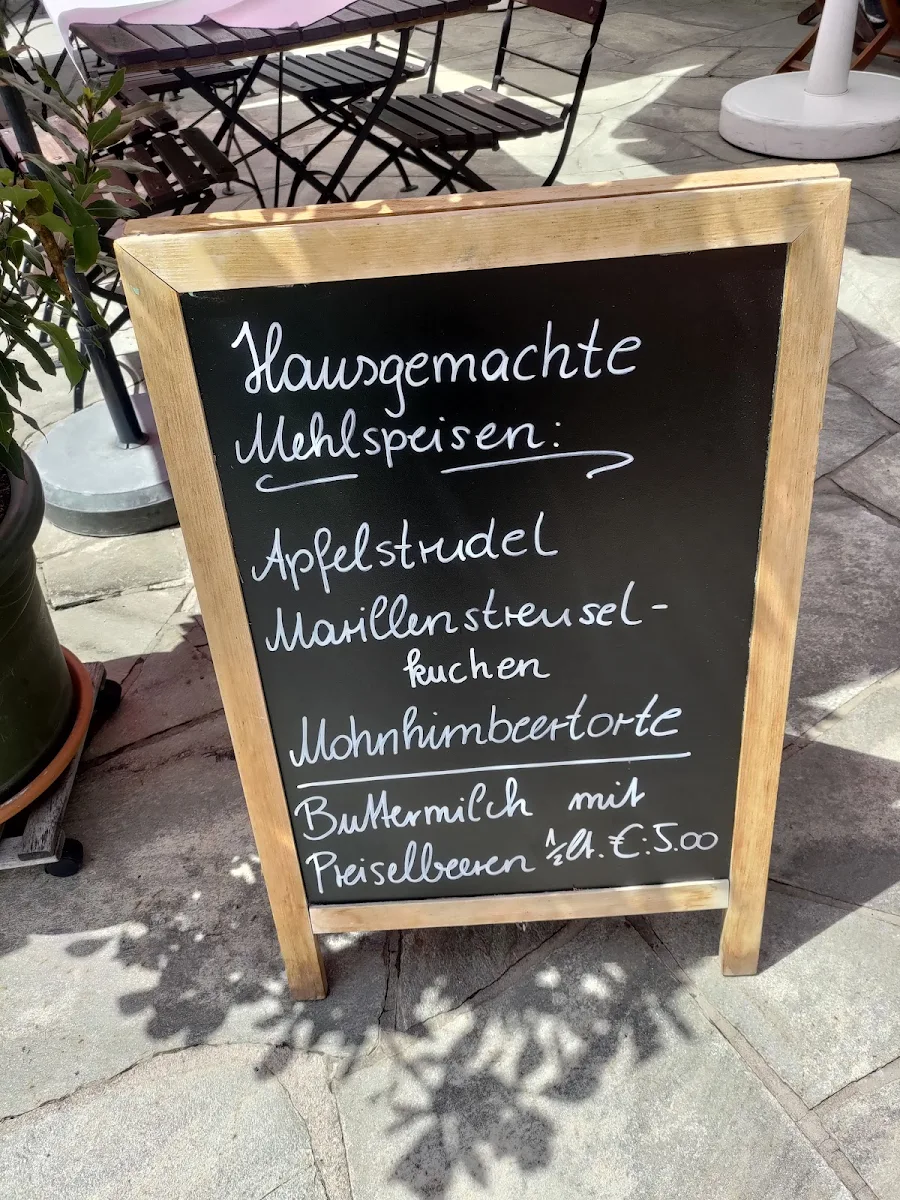 Hausgemachte
Mehlspeisen:
Apfelstrudel
Marillenstreusel-
kuchen
Mohnhimbeertorte
Buttermilch mit
Preiselbeeren 1/2 lt. €:5.00